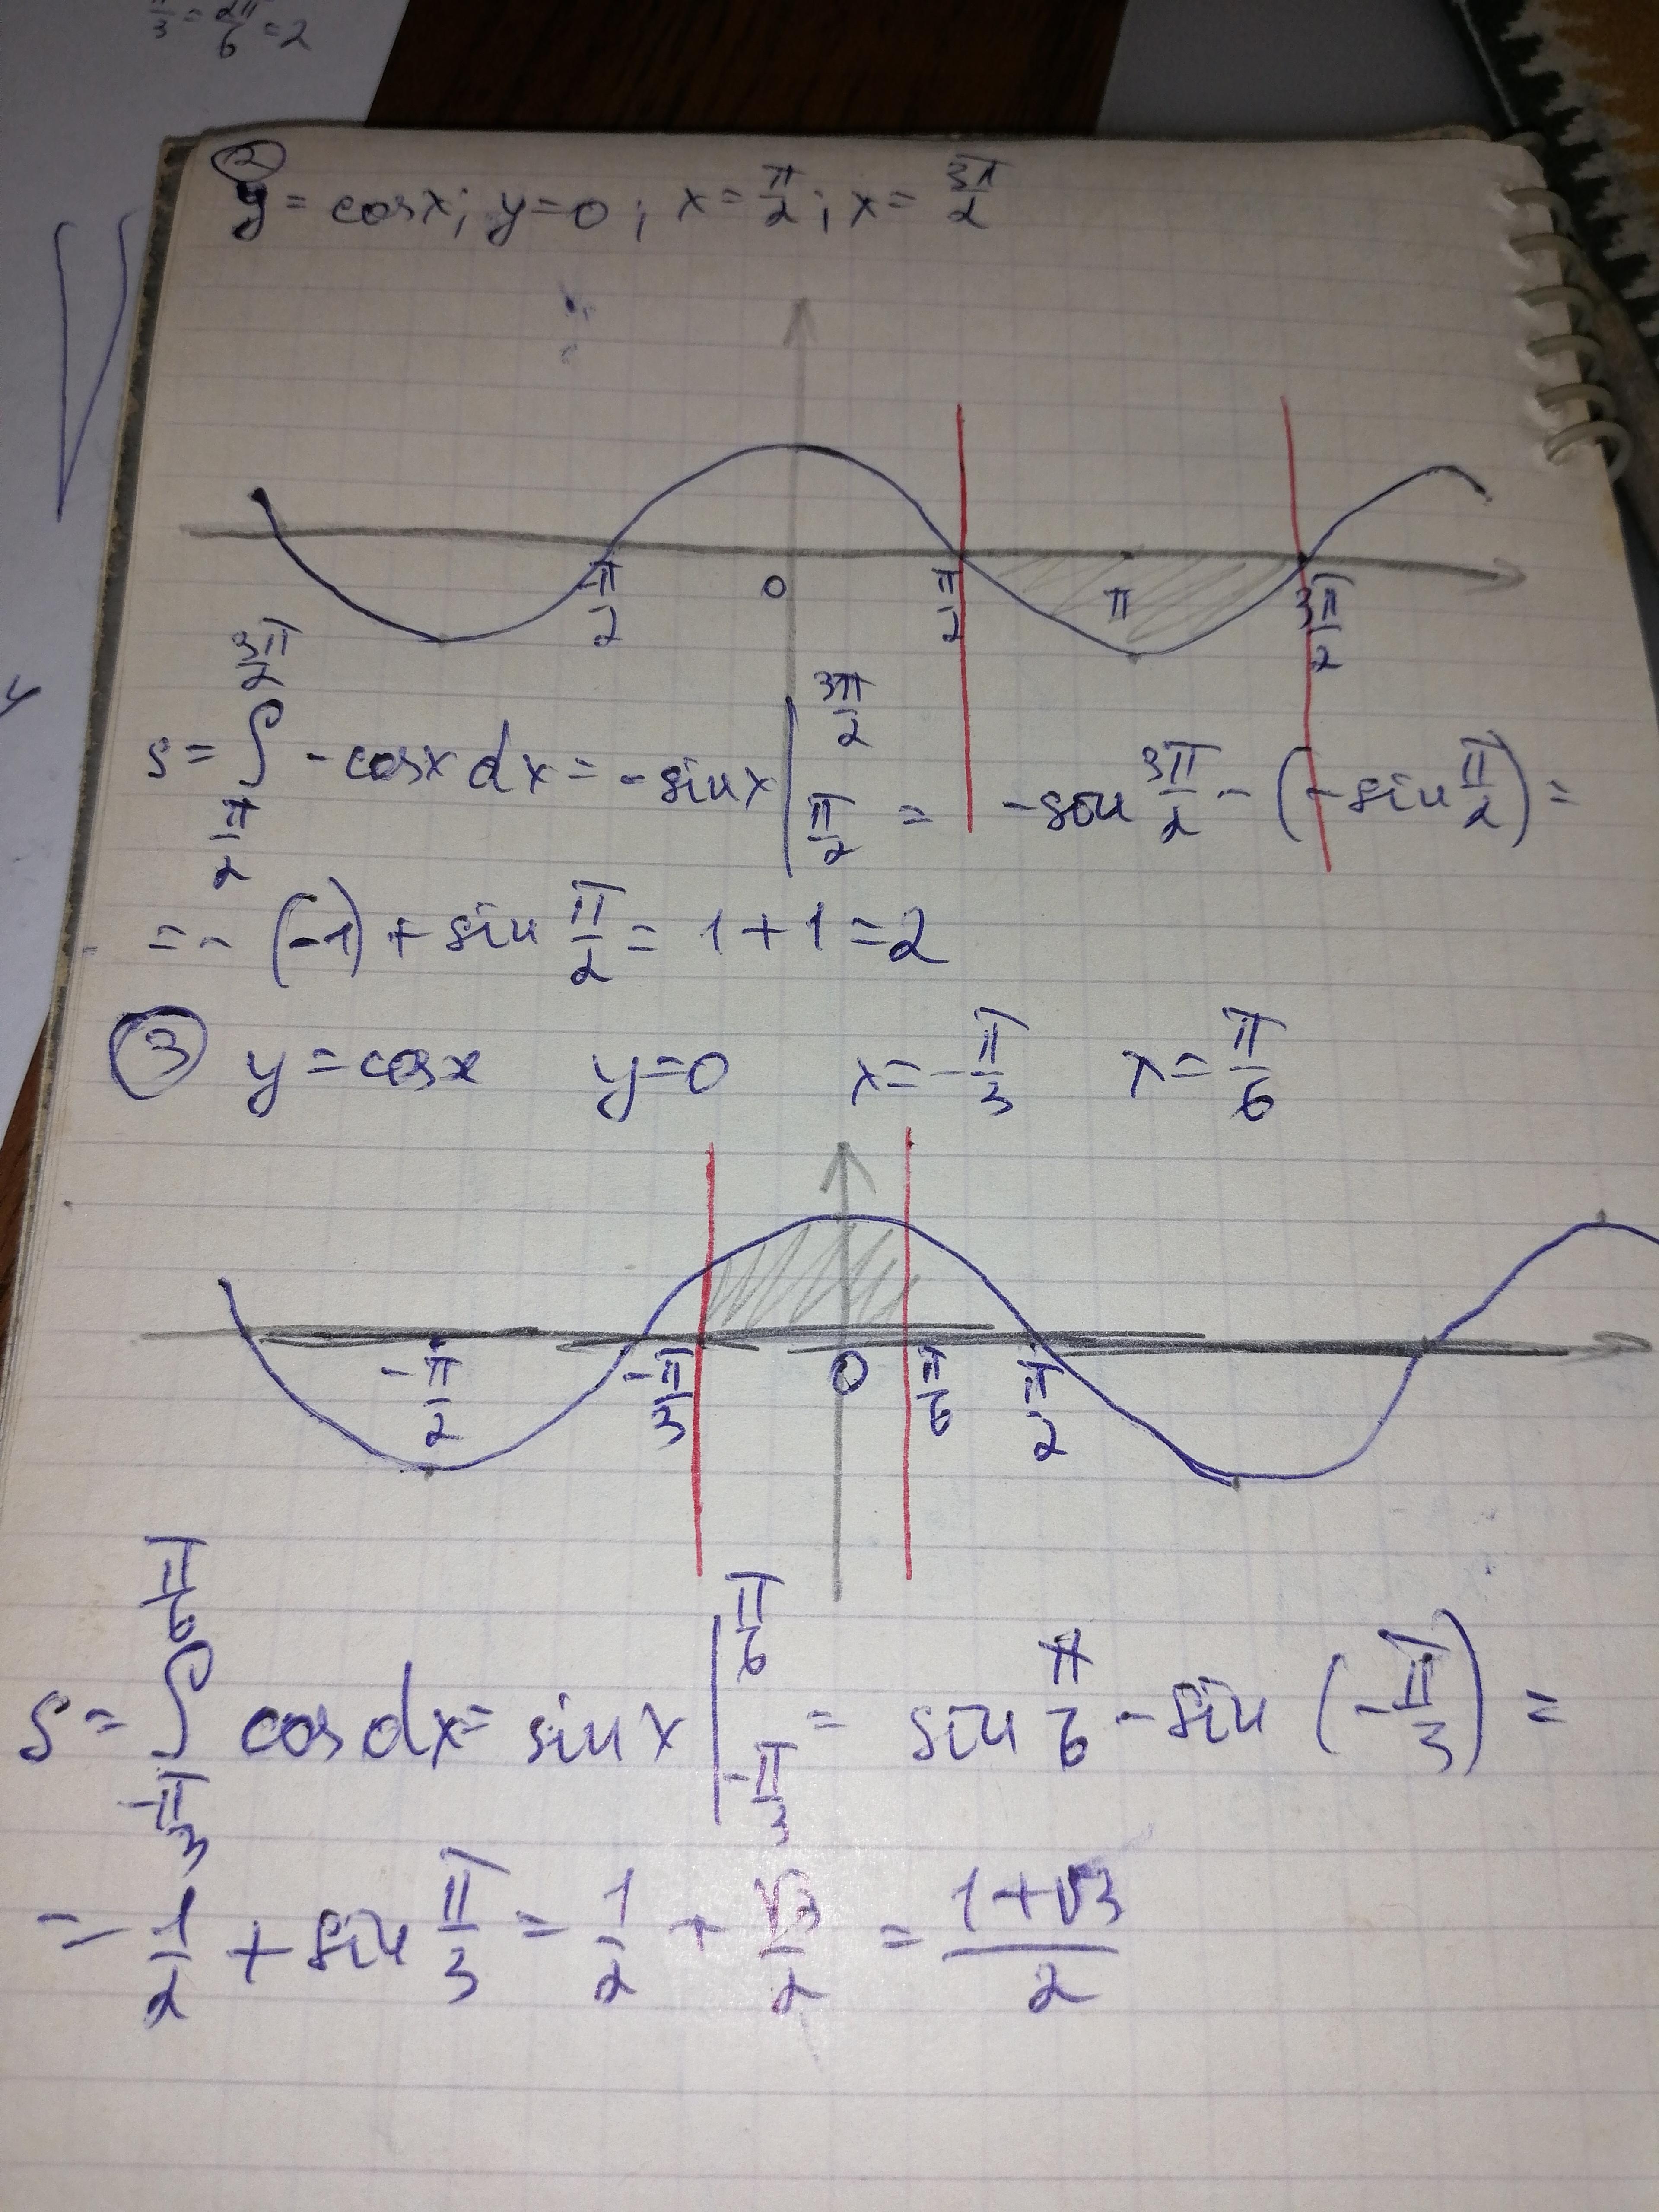 π/3 = 2π/6 = 2
②
y = cosx; y=0; x = π/2; x = 3π/2
-π/2 0 π/2 π 3π/2
S = ∫_{π/2}^{3π/2} -cosx dx = -sinx |_{π/2}^{3π/2} = -sin 3π/2 - (-sin π/2) =
= - (-1) + sin π/2 = 1 + 1 = 2
③ y = cosx y=0 x = -π/3 x = π/6
-π/2 -π/3 0 π/6 π/2
S = ∫_{-π/3}^{π/6} cos dx = sinx |_{-π/3}^{π/6} = sin π/6 - sin (-π/3) =
= 1/2 + sin π/3 = 1/2 + √3/2 = (1+√3)/2